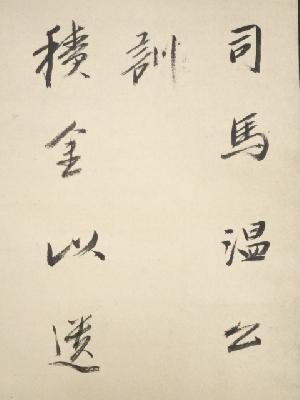 司馬温公
訓
積金以遺